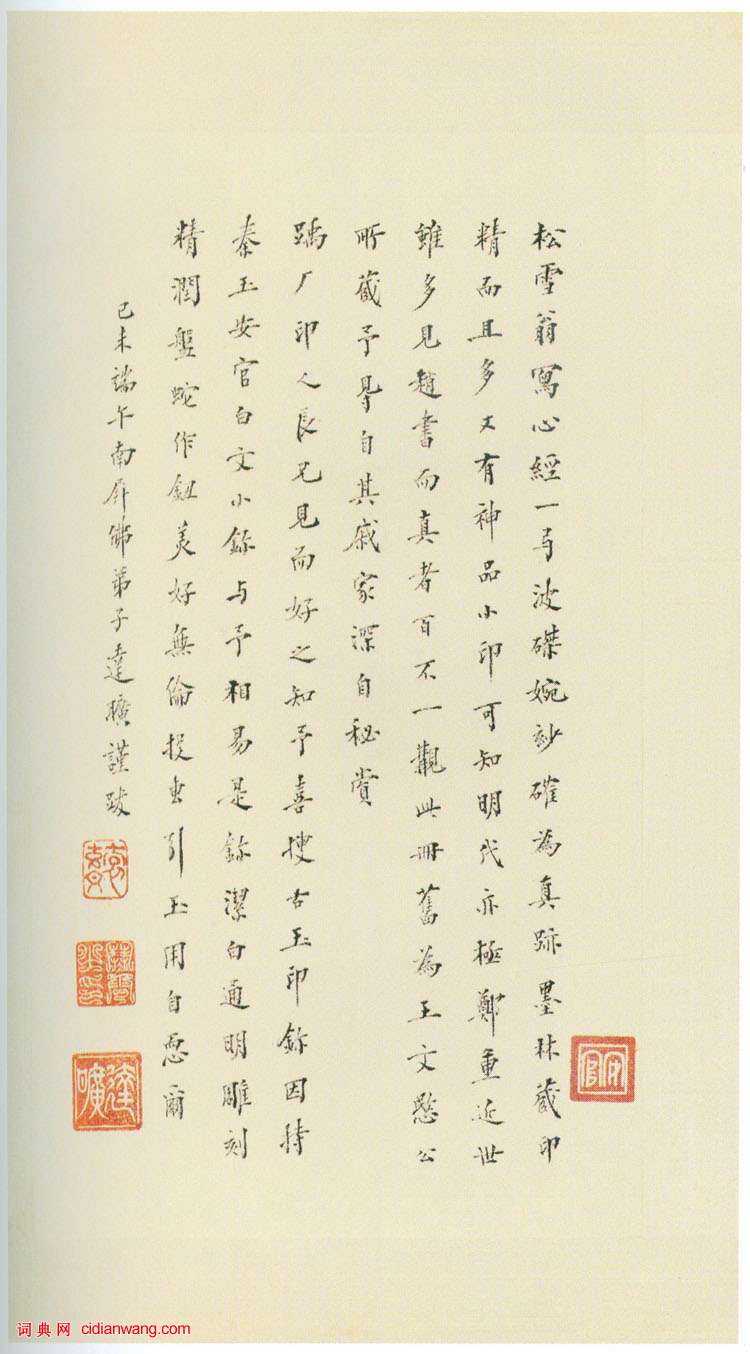 松雪翁寫心經一弓波磔婉玅確為真跡墨林藏印
精而且多又有神品小印可知明代亦極鄭重近世
雖多見趙書而真者百不一觀此冊舊為王文愍公
所藏予得自其戚家深自秘賞
踽厂印人長兄見而好之知予喜搜古玉印鉨因持
秦玉安官白文小鉨与予相易是鉨潔白通明雕刻
精潤盤蛇作鈕美好無倫引玉用自恧爾
己未端午南屏佛弟子達曠謹跋
安官
達曠
词典网 cidianwang.com